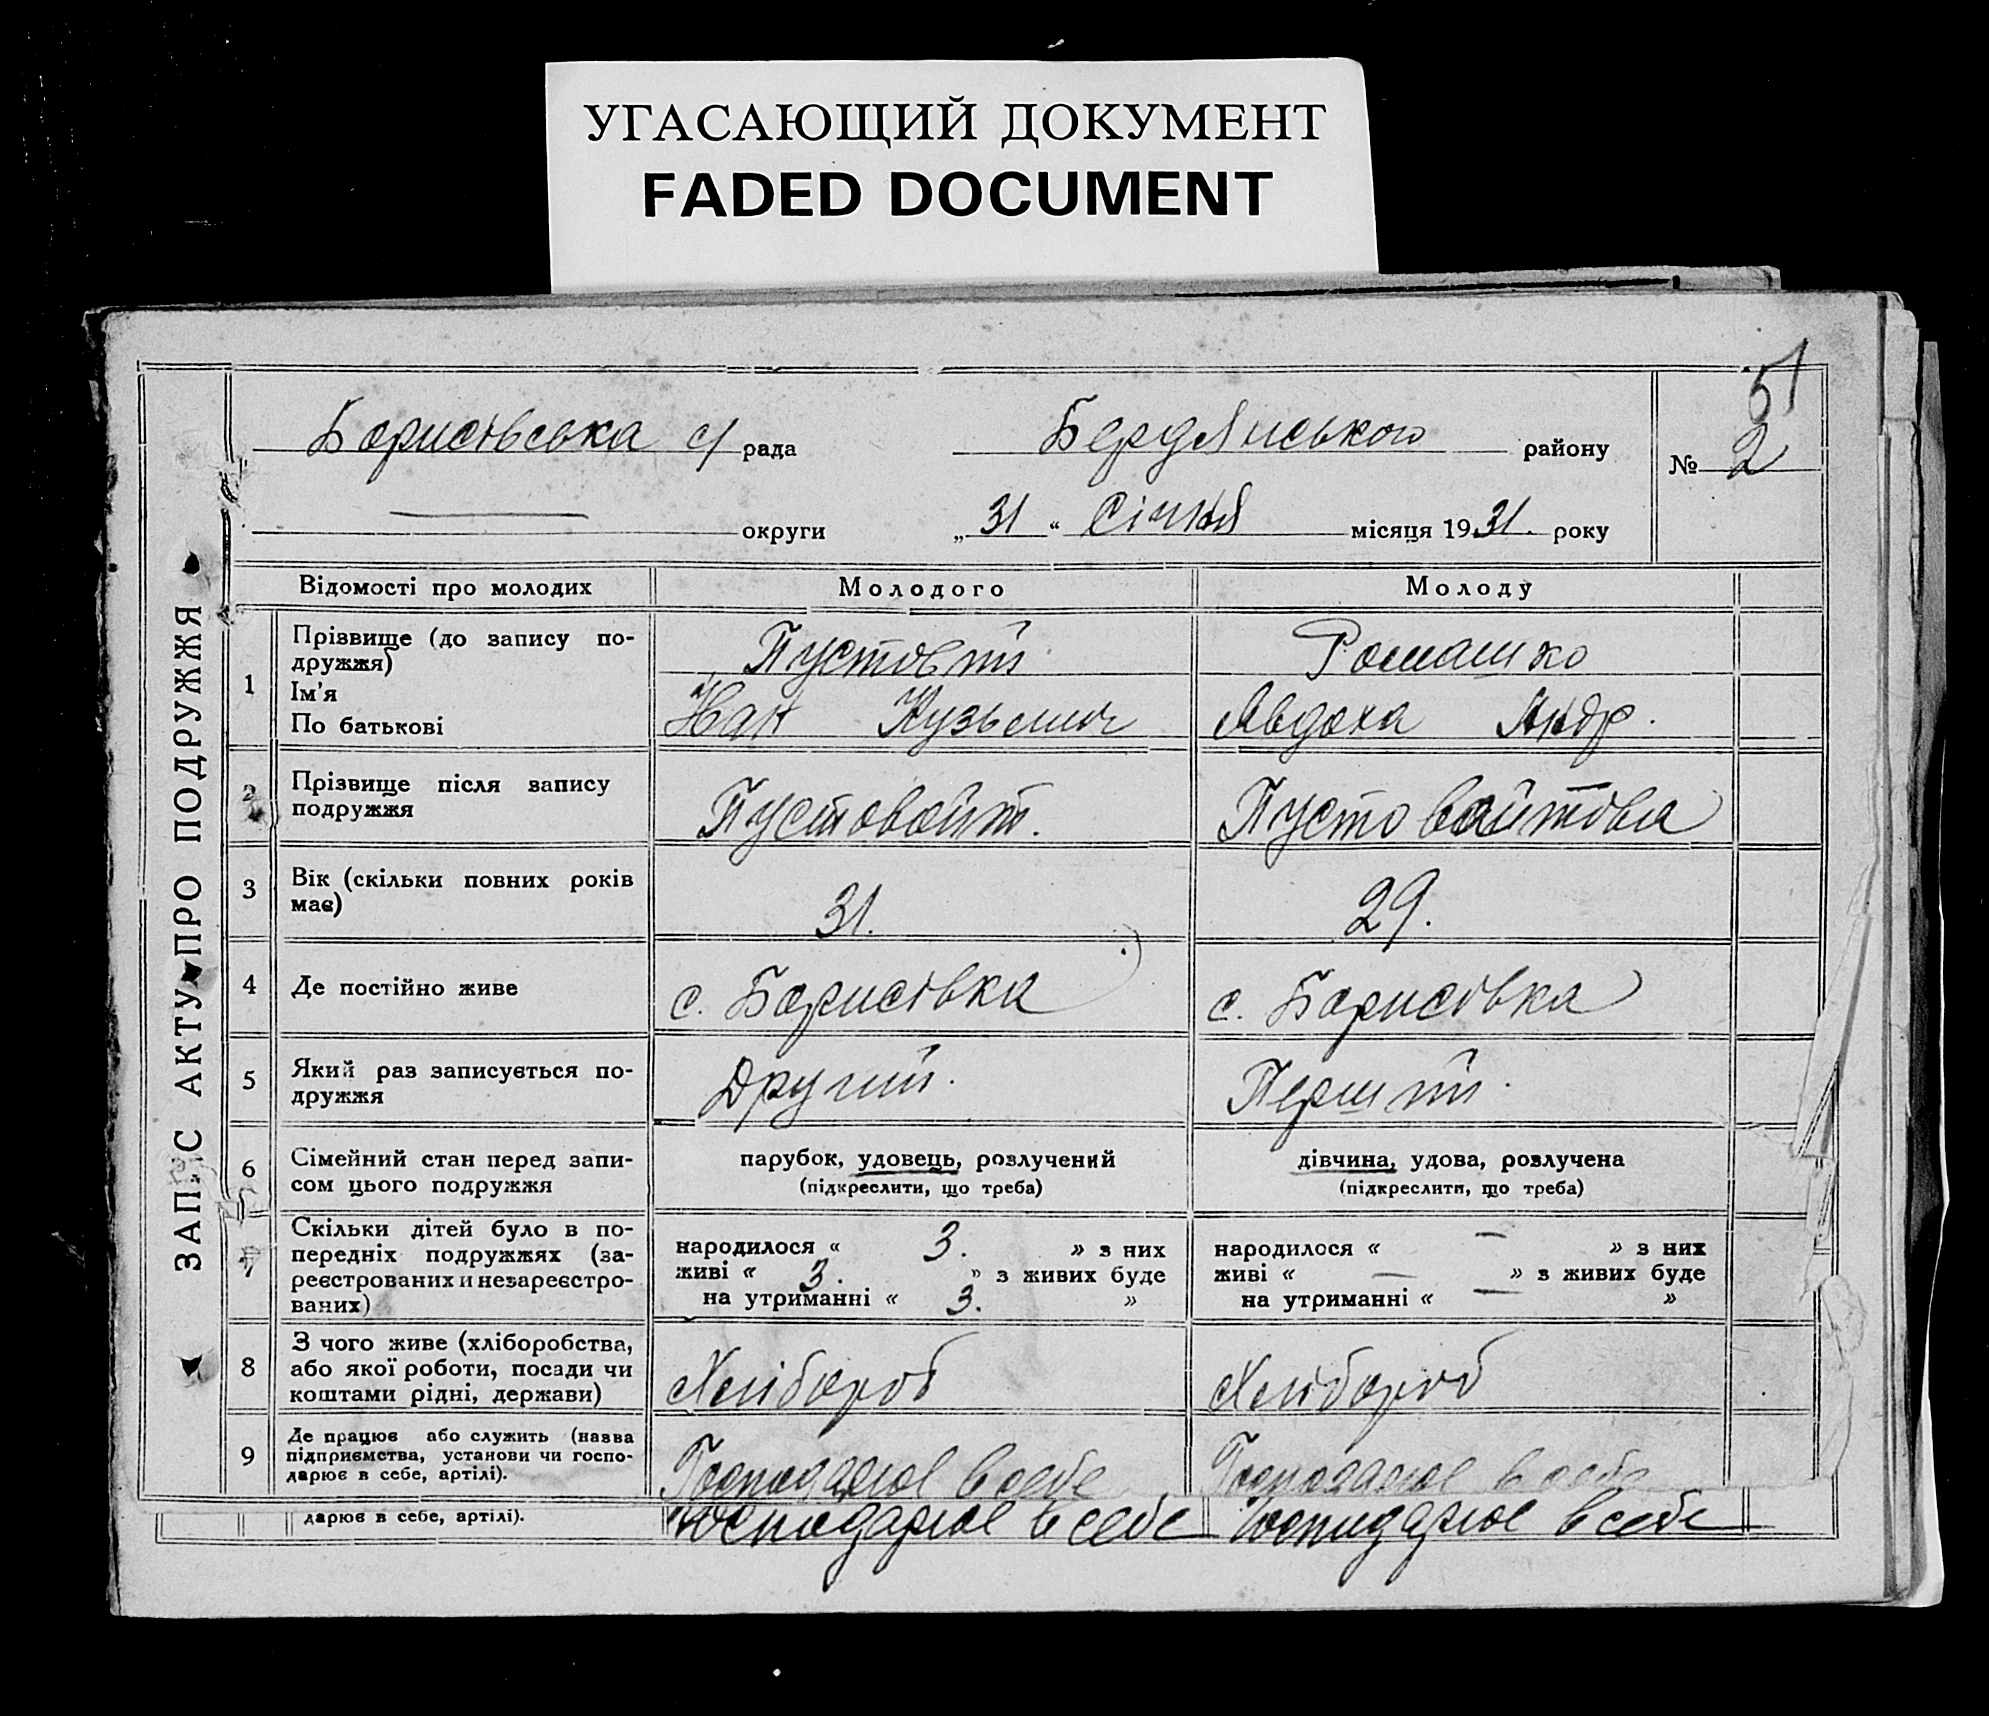 УГАСАЮЩИЙ ДОКУМЕНТ
FADED DOCUMENT
51
Борисівська с/рада Бердянського району № 2
округи „31“ Січня місяця 1931. року
ЗАПИС АКТУ ПРО ПОДРУЖЖЯ
Відомості про молодих Молодого Молоду
1 Прізвище (до запису по-
дружжя)
Ім'я
По батькові
Пустовіт Ромашко
Кузьмич Явдоха Андр.
2 Прізвище після запису
подружжя
Пустовойт. Пустовойтова
3 Вік (скільки повних років
має)
31. 29.
4 Де постійно живе с. Борисівка с. Борисівка
5 Який раз записується по-
дружжя
Другий. Перший.
6 Сімейний стан перед запи-
сом цього подружжя
парубок, удовець, розлучений
(підкреслити, що треба)
дівчина, удова, розлучена
(підкреслити, що треба)
7 Скільки дітей було в по-
передніх подружжях (за-
реєстрованих и незареєстро-
ваних)
народилося « 3. » з них
живі « 3. » з живих буде
на утриманні « 3. »
народилося « — » з них
живі « — » з живих буде
на утриманні « — »
8 З чого живе (хліборобства,
або якої роботи, посади чи
коштами рідні, держави)
Хлібороб Хлібороб
9 Де працює або служить (назва
підприємства, установи чи госпо-
дарює в себе, артілі).
Господарює в себе Господарює в себе
дарює в себе, артілі). Господарює в себе Господарює в себе